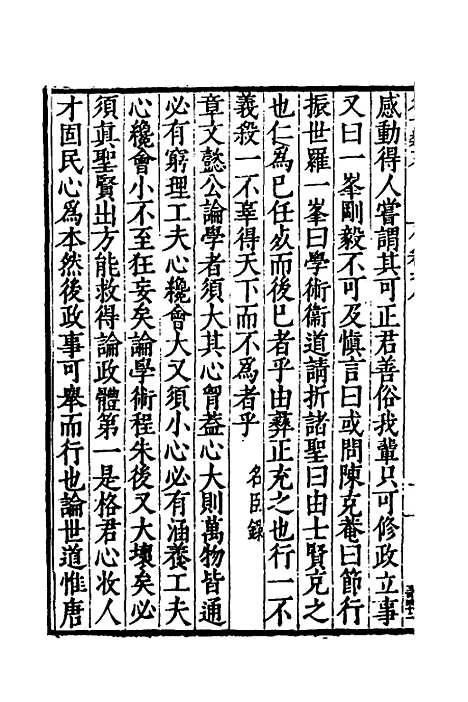 感動得人嘗謂其可正君善俗我輩只可修政立事
又曰一峯剛毅不可及愼言曰或問陳克菴曰節行
振世羅一峯曰學術衞道請折諸聖曰由士賢克之
也仁爲已任死而後已者乎由彞正充之也行一不
義殺一不辜得天下而不爲者乎　名臣錄
章文懿公論學者須大其心胷蓋心大則萬物皆通
必有窮理工夫心纔會大又須小心必有涵養工夫
心纔會小不至狂妄矣論學術程朱後又大壞矣必
須眞聖賢出方能救得論政體第一是格君心收人
才固民心爲本然後政事可舉而行也論世道惟唐